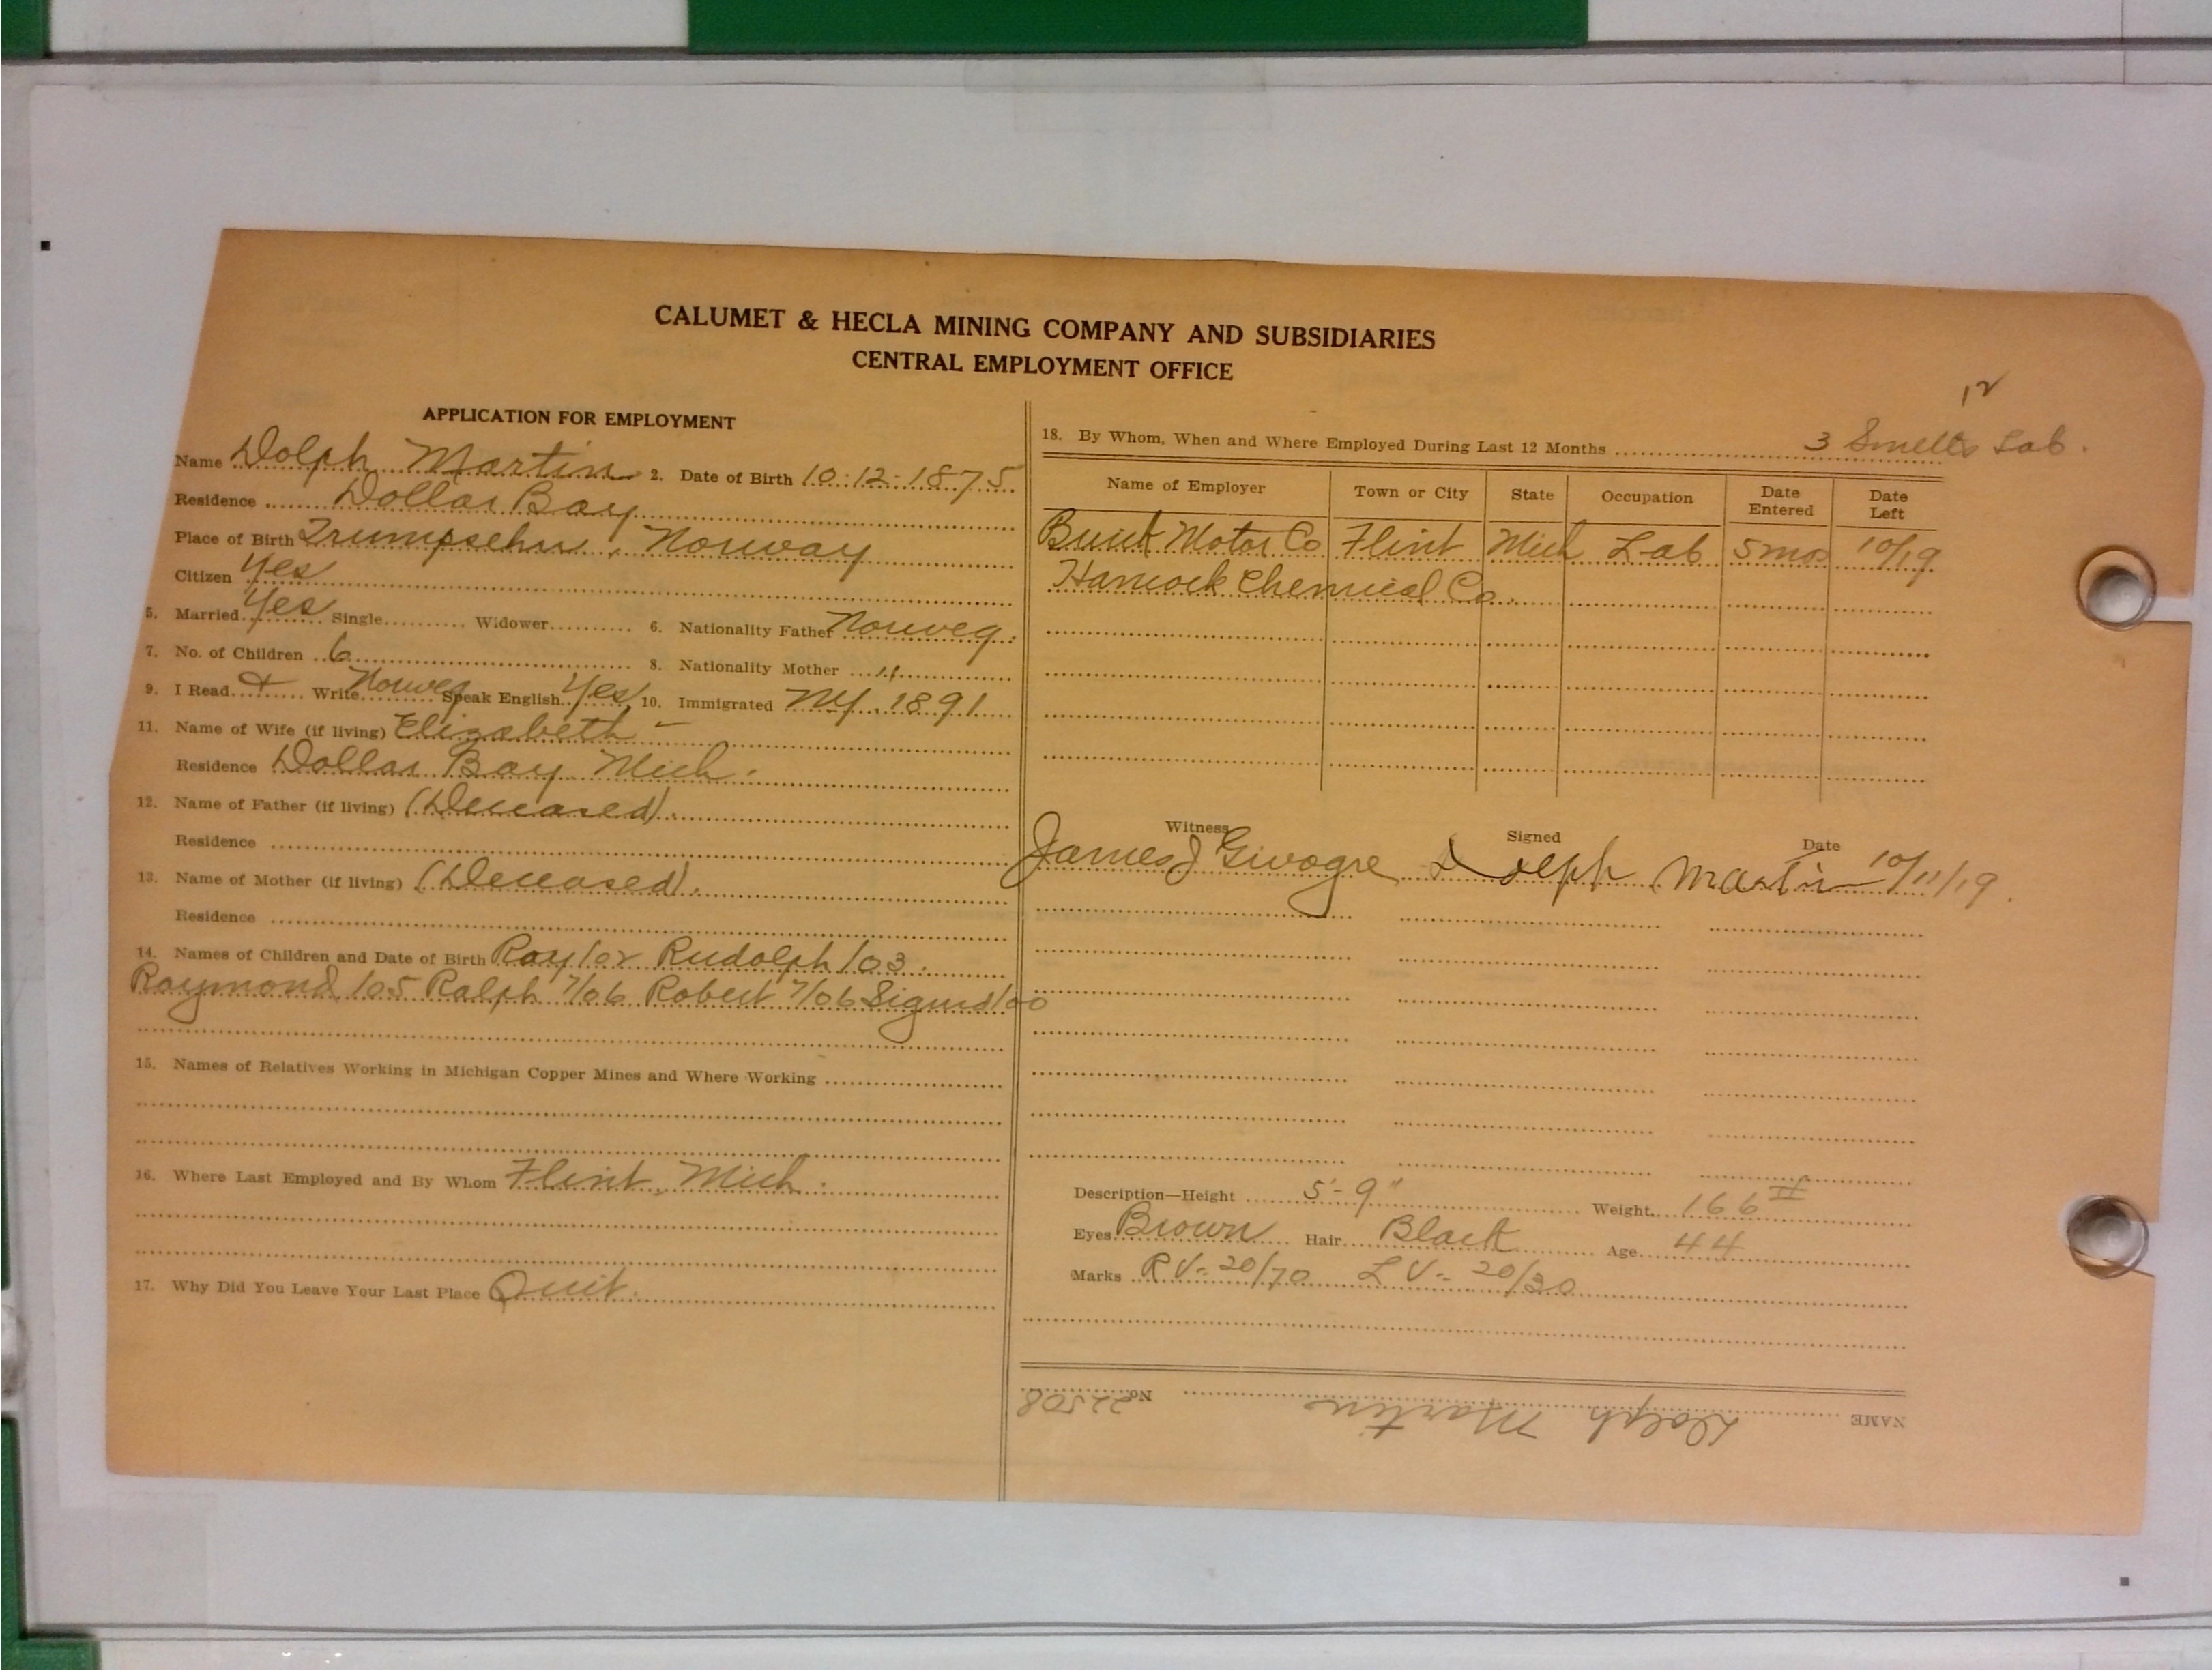 CALUMET & HECLA MINING COMPANY AND SUBSIDIARIES
CENTRAL EMPLOYMENT OFFICE
APPLICATION FOR EMPLOYMENT
Name Dolph Martin 2. Date of Birth 10-12-1875
Residence Dollar Bay
Place of Birth Trumpsehn, Norway
Citizen Yes
5. Married Yes Single Widower 6. Nationality Father Norweg.
7. No. of Children 6 8. Nationality Mother "
9. I Read & Write Norweg Speak English Yes 10. Immigrated NY. 1891
11. Name of Wife (if living) Elizabeth -
Residence Dollar Bay Mich.
12. Name of Father (if living) (Deceased).
Residence
13. Name of Mother (if living) (Deceased).
Residence
14. Names of Children and Date of Birth Roy/02 Rudolph/03.
Raymond/05 Ralph 7/06 Robert 7/06 Sigurd/00
15. Names of Relatives Working in Michigan Copper Mines and Where Working
16. Where Last Employed and By Whom Flint, Mich.
17. Why Did You Leave Your Last Place Quit.
12
18. By Whom, When and Where Employed During Last 12 Months 3 Smelts Lab.
Name of Employer Town or City State Occupation Date Entered Date Left
Buick Motor Co Flint Mich Lab 5 mos 10/19
Hancock Chemical Co.
Witness Signed Date
James J Givogre Dolph Martin 10/11/19.
Description—Height 5'-9" Weight 166 #
Eyes Brown Hair Black Age 44
Marks RV- 20/70 LV- 20/30
NAME Dolph Martin No. 22508